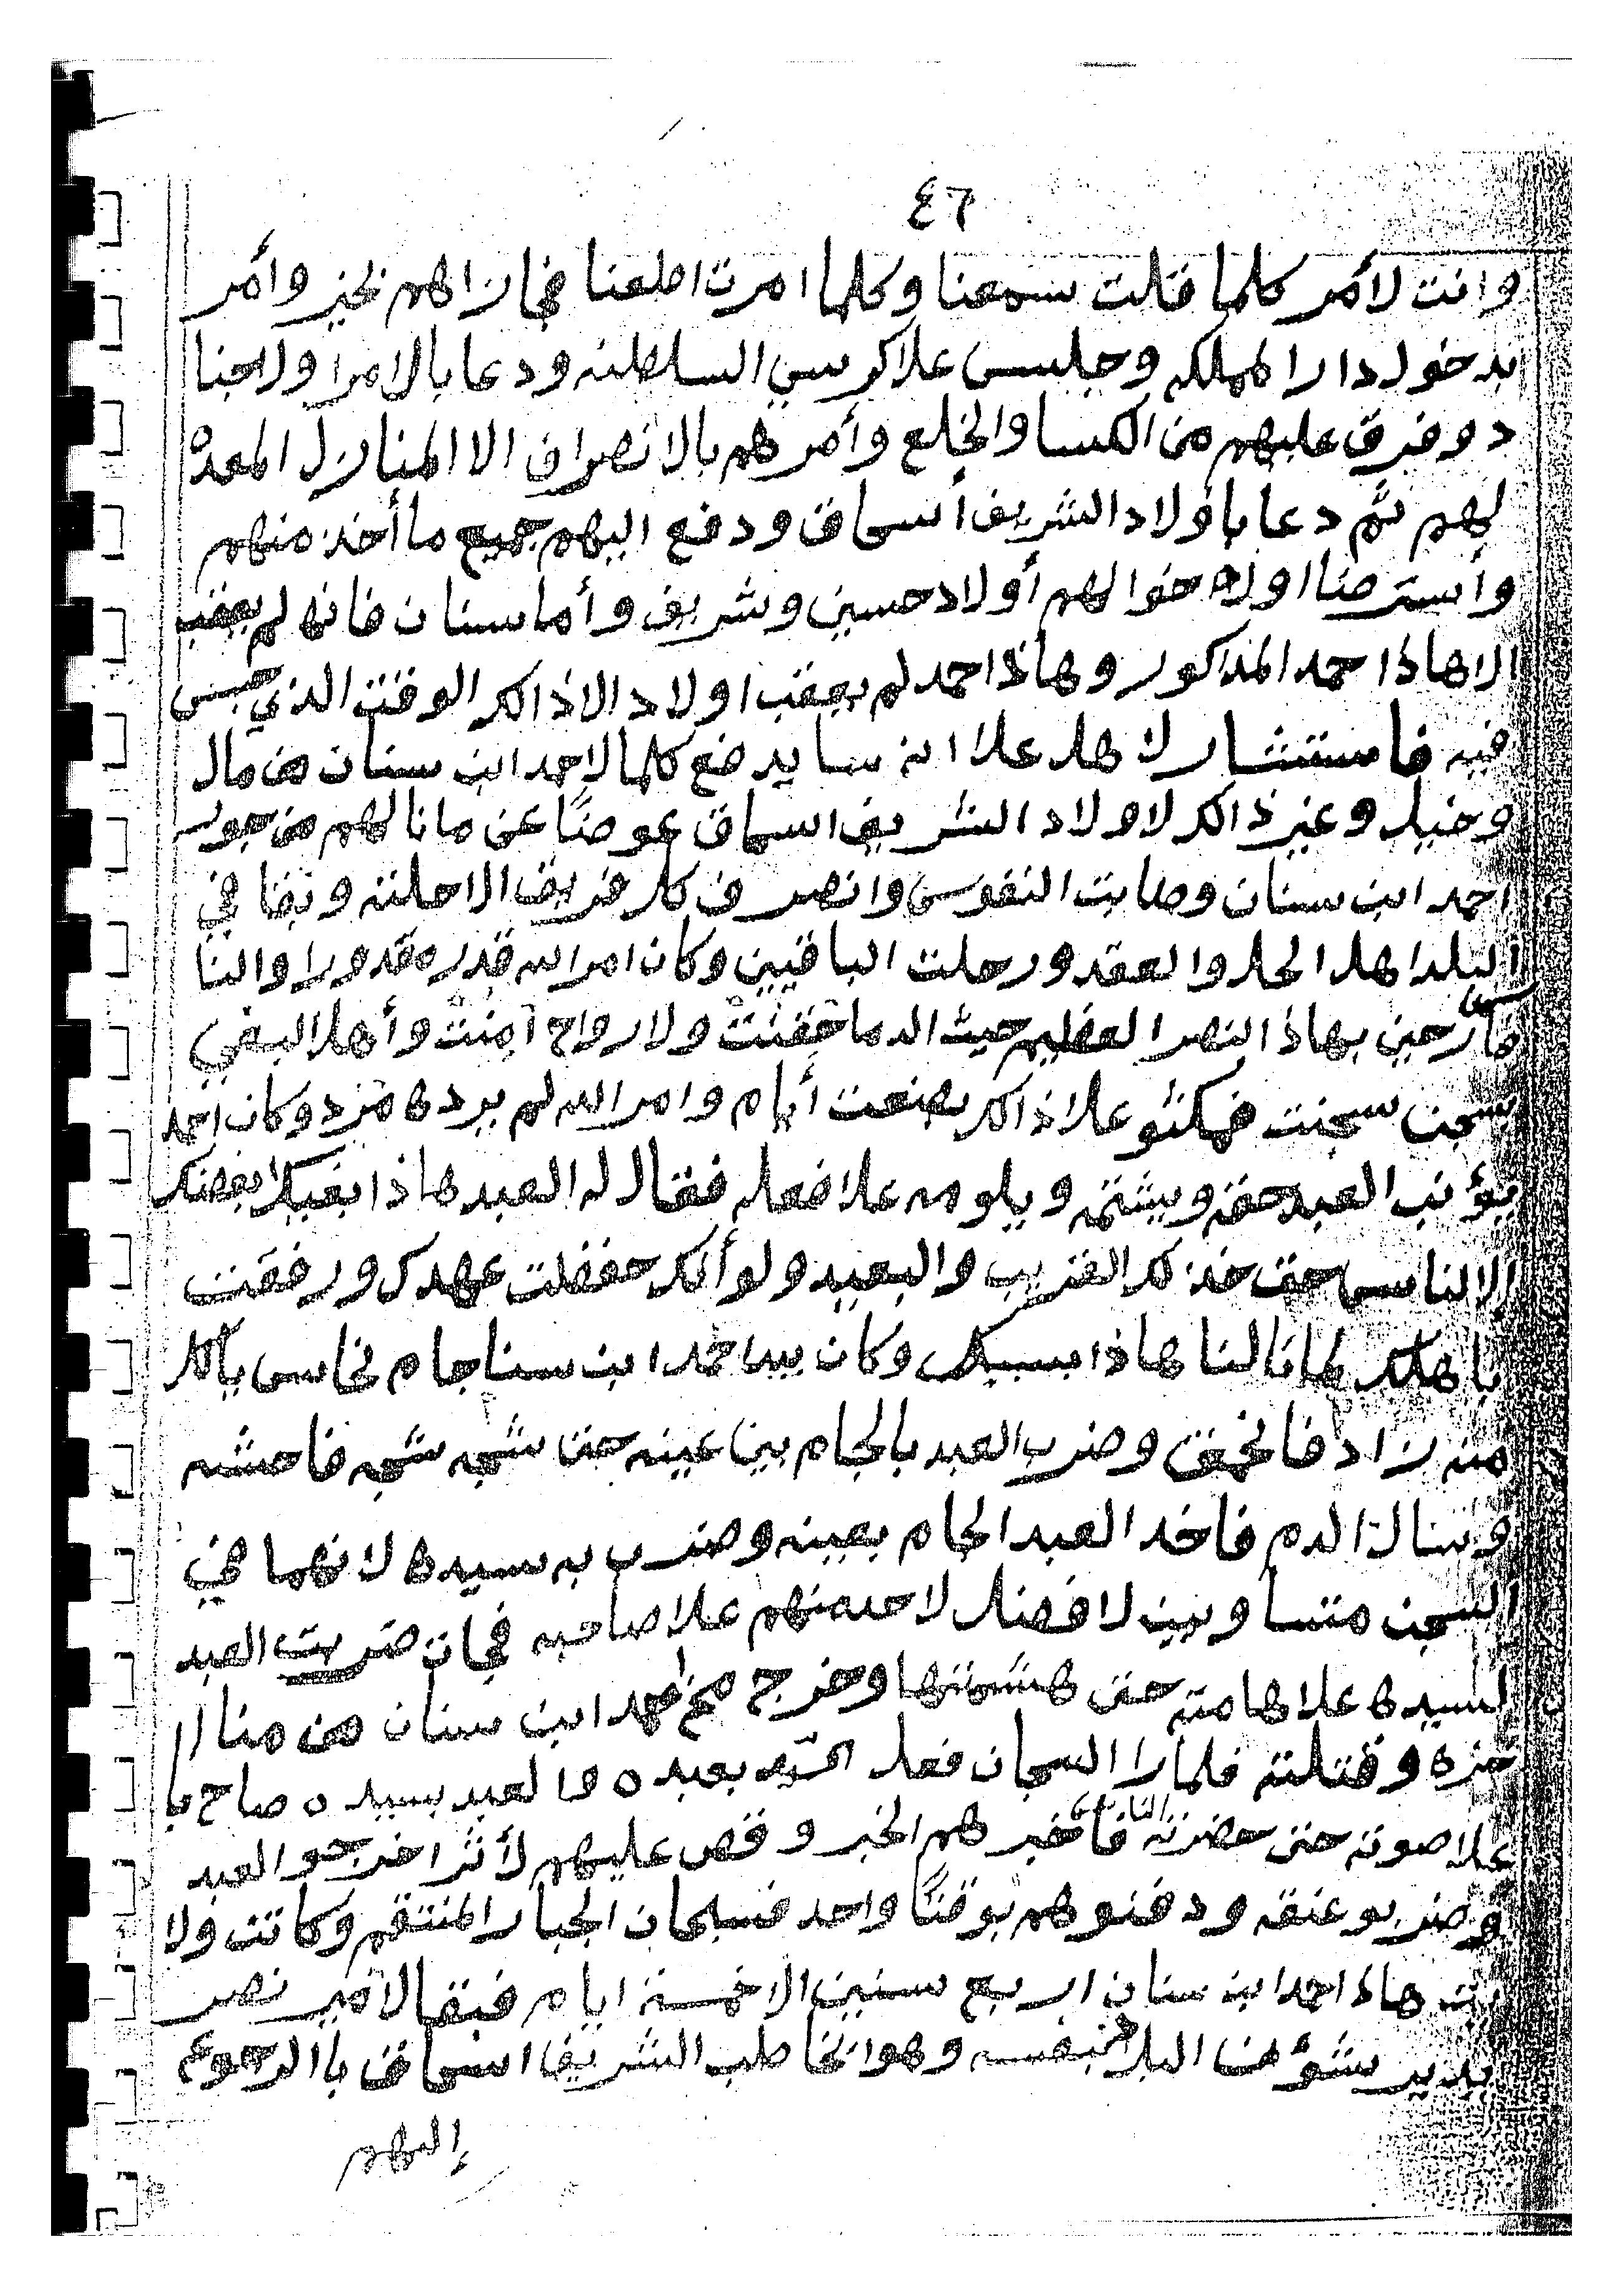 ٤٦
وانت لأمر كلما قلت سمعنا وكلما امرت اطعنا فجازالهم بخير وأمر
بدخول دار المملكه وجلس علا كرسي السلطنه ودعا بالامرا ولاجنا
د وفرق عليهم من الكسا والخلع وأمرهم بالانصراف الا المنازل المعدة
لهم ثم دعا باولاد الشريف أسحاق ودفع اليهم جميع ما أخذ منهم
وأسترضا اولاد خوالهم أولاد حسين وشريف وأما سنان فانه لم يعقب
الا هاذا احمد المذاكور وهاذا احمد لم يعقب اولاد الا ذالكر الوقت الذي حبس
فيه فاستشار لاهل علا انه سا يدفع كلما لاحمد ابن سنان من مال
وخيل وغير ذالك لاولاد الشريف اسحاق عوضًا عن مانالهم من جور
احمد ابن سنان وطابت النفوس وانصرف كل فريق الا حلته وبقا في
البلد اهل الحل والعقد ورحلت الباقيين وكان امر الله قدر مقدورا والنا
س فارحين بهاذا النصر العظيم حيث الدما حقنت ولارواح آمنت وأهل البغي
بسجن سجنت فمكثو علا ذالك بضعت أيام وامر الله لم يرده مرد وكان احمد
يؤنب العبد حقه ويشتمه ويلومه علا فعله فقال له العبد هاذا بغيك ابغضك
الا الناس حتى خذلك القريب والبعيد ولو أنك حفظت عهدك ورفقت
باهلك لما نالنا هاذا بسببك وكان بيد احمد ابن سنا جام نحاس يأكل
منه زاد فانحمق وضرب العبد بالجام بين عينه حتى شجه شجه فاحشه
وسال الدم فاخد العبد الجام بعينه وضرب به سيده لانهما في
السجن متساويين لا فضل لاحد منهم علا صاحبه فجات ضربت العبد
لسيده علا هامته حتى هشمتها وخرج مخ احمد ابن سنان من منا
خره وقتلته فلما را السجان فعل السيد بعبده والعبد بسيده صاح با
علا صوته حتى حضرته الناس فاخبرهم الخبر وقص عليهم لأثر اخرجو العبد
وضربو عنقه ودفنوهم بوقتًا واحد فسبحان الجبار المنتقم وكانت ولا
يت هاذا احمد ابن سنان اربع سنين الا خمسة ايام فبقا لامير نصر
يدير شؤن البلاد بنفسه وهوا يخاطب الشريف اسحاق باالرجوع
إليهم